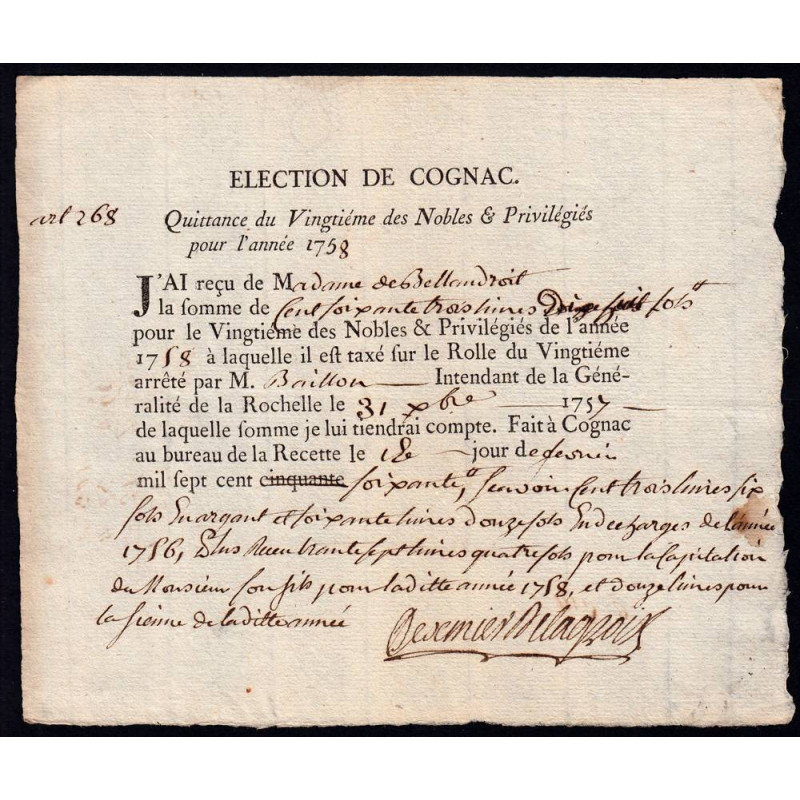 ELECTION DE COGNAC.
art 268
Quittance du Vingtiéme des Nobles & Privilégiés
pour l'année 1758
J'AI reçu de Madame de Bellandroit
la somme de Cent soixante trois livres sols
pour le Vingtiéme des Nobles & Privilégiés de l'année
1758 à laquelle il est taxé sur le Rolle du Vingtiéme
arrêté par M. Baillon Intendant de la Géné-
ralité de la Rochelle le 31 xbre 1757
de laquelle somme je lui tiendrai compte. Fait à Cognac
au bureau de la Recette le jour de fevrier
mil sept cent cinquante soixante, scavoir Cent trois livres six
sols En argant et soixante livres douze sols En decharges de l'année
1756, Plus Receu trante sept livres quatre sols pour la Capitation
de Monsieur son fils pour laditte année 1758, et douze livres pour
la sienne de laditte année